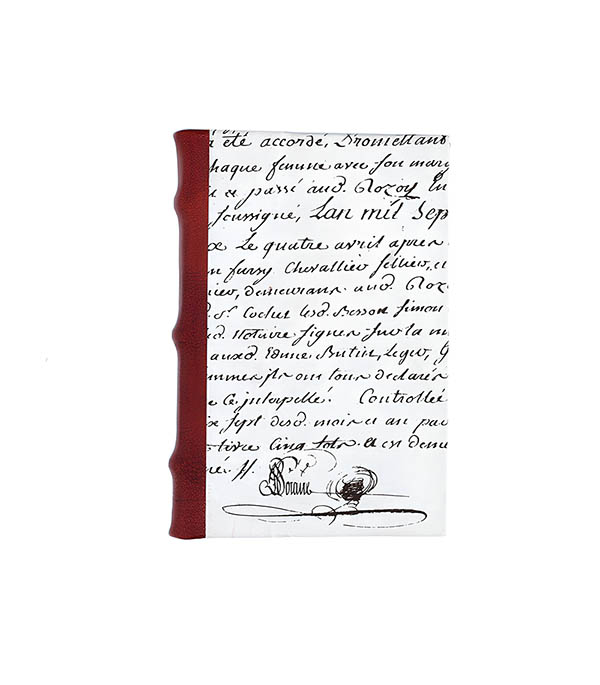 a été accordé, Promettant
haque femme avec son marg
a passé aud. Rozoy En
soussigné, Lan mil Sep
Le quatre avril apres
furry Chevallier sellier, et
demeurans aud. Roz
d. St. Cochet lesd. Besson Simon
Notaire signer sur la mi
auxd. Edme Butin, Leger, G
ont tous declarés
e Ce interpellé. Controllée
sept desd. mois et an par
Cinq sols et est deme